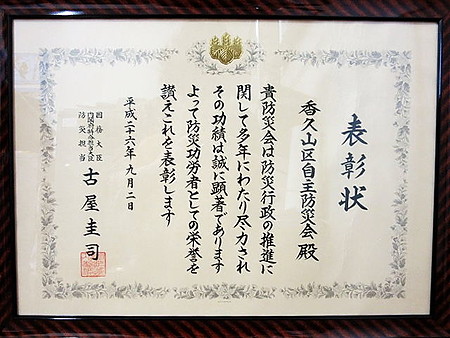 表彰状
香久山区自主防災会 殿
貴防災会は防災行政の推進に
関して多年にわたり尽力され
その功績は誠に顕著であります
よって防災功労者としての栄誉を
讃えこれを表彰します
平成二十六年 九月 二日
国務大臣
内閣府特命担当大臣
防災担当
古屋圭司